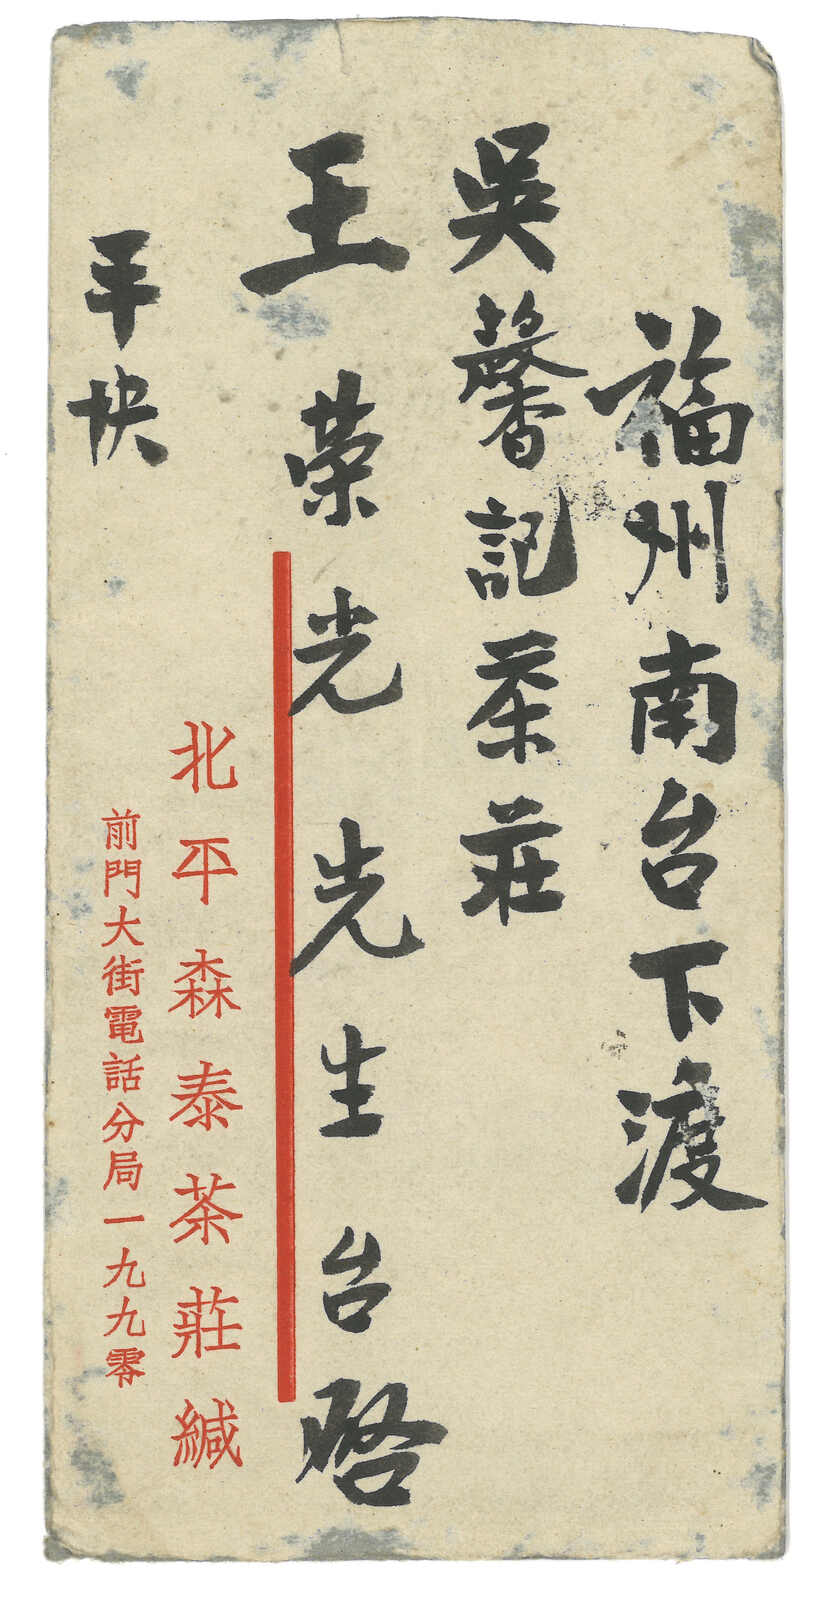 福州南台下渡
吳馨記茶莊
王榮光先生台啓
平快
北平森泰茶莊緘
前門大街電話分局一九九零